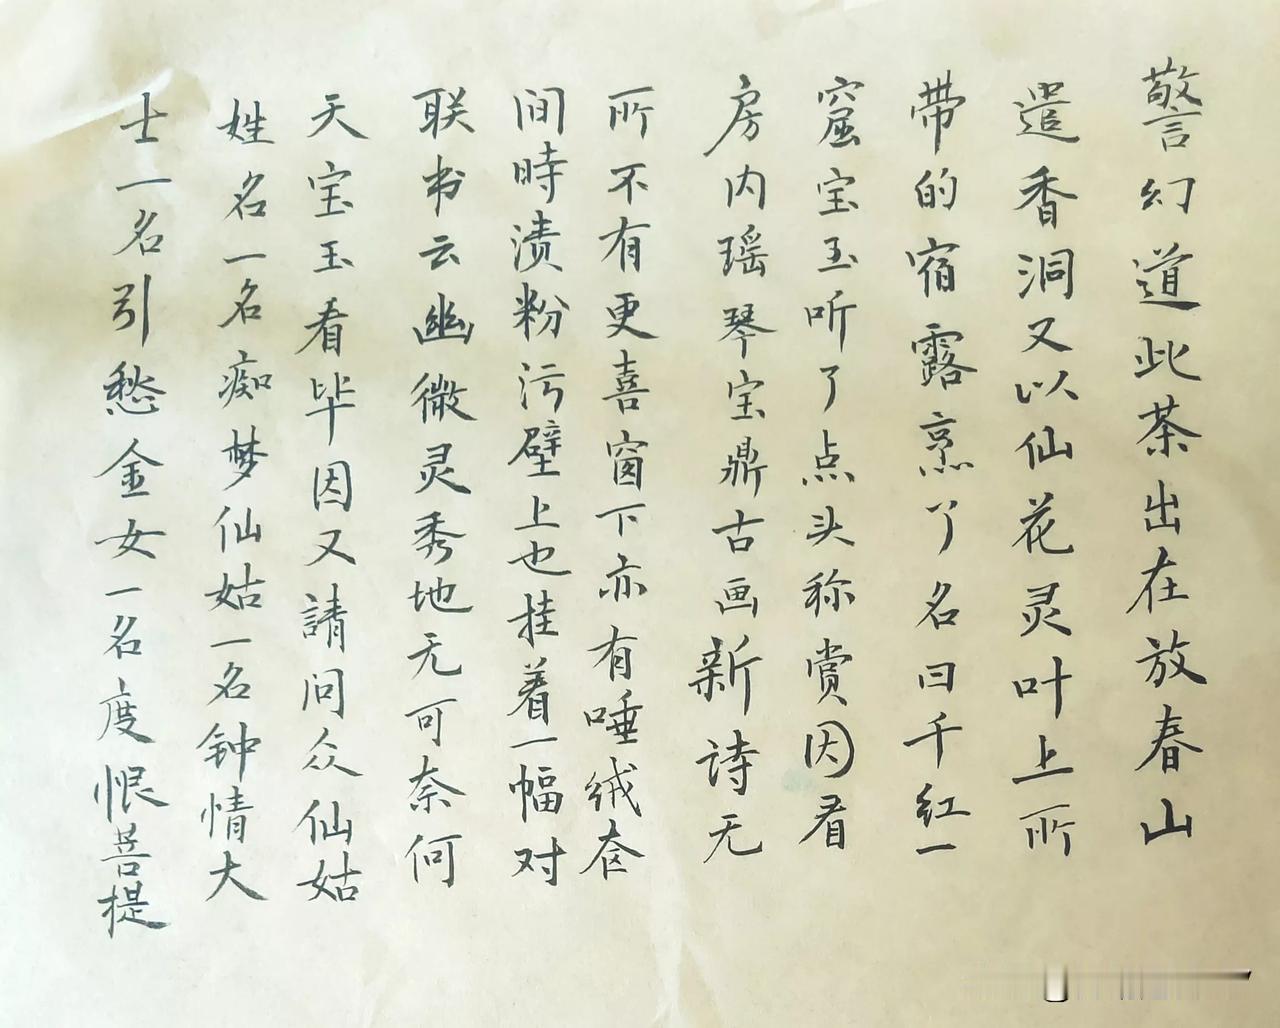 警幻道此茶出在放春山
遣香洞又以仙花灵叶上所
带的宿露烹了名曰千红一
窟宝玉听了点头称赏因看
房内瑶琴宝鼎古画新诗无
所不有更喜窗下亦有唾绒奁
间時渍粉污壁上也挂着一幅对
联书云幽微灵秀地无可奈何
天宝玉看毕因又請问众仙姑
姓名一名痴梦仙姑一名钟情大
士一名引愁金女一名度恨菩提